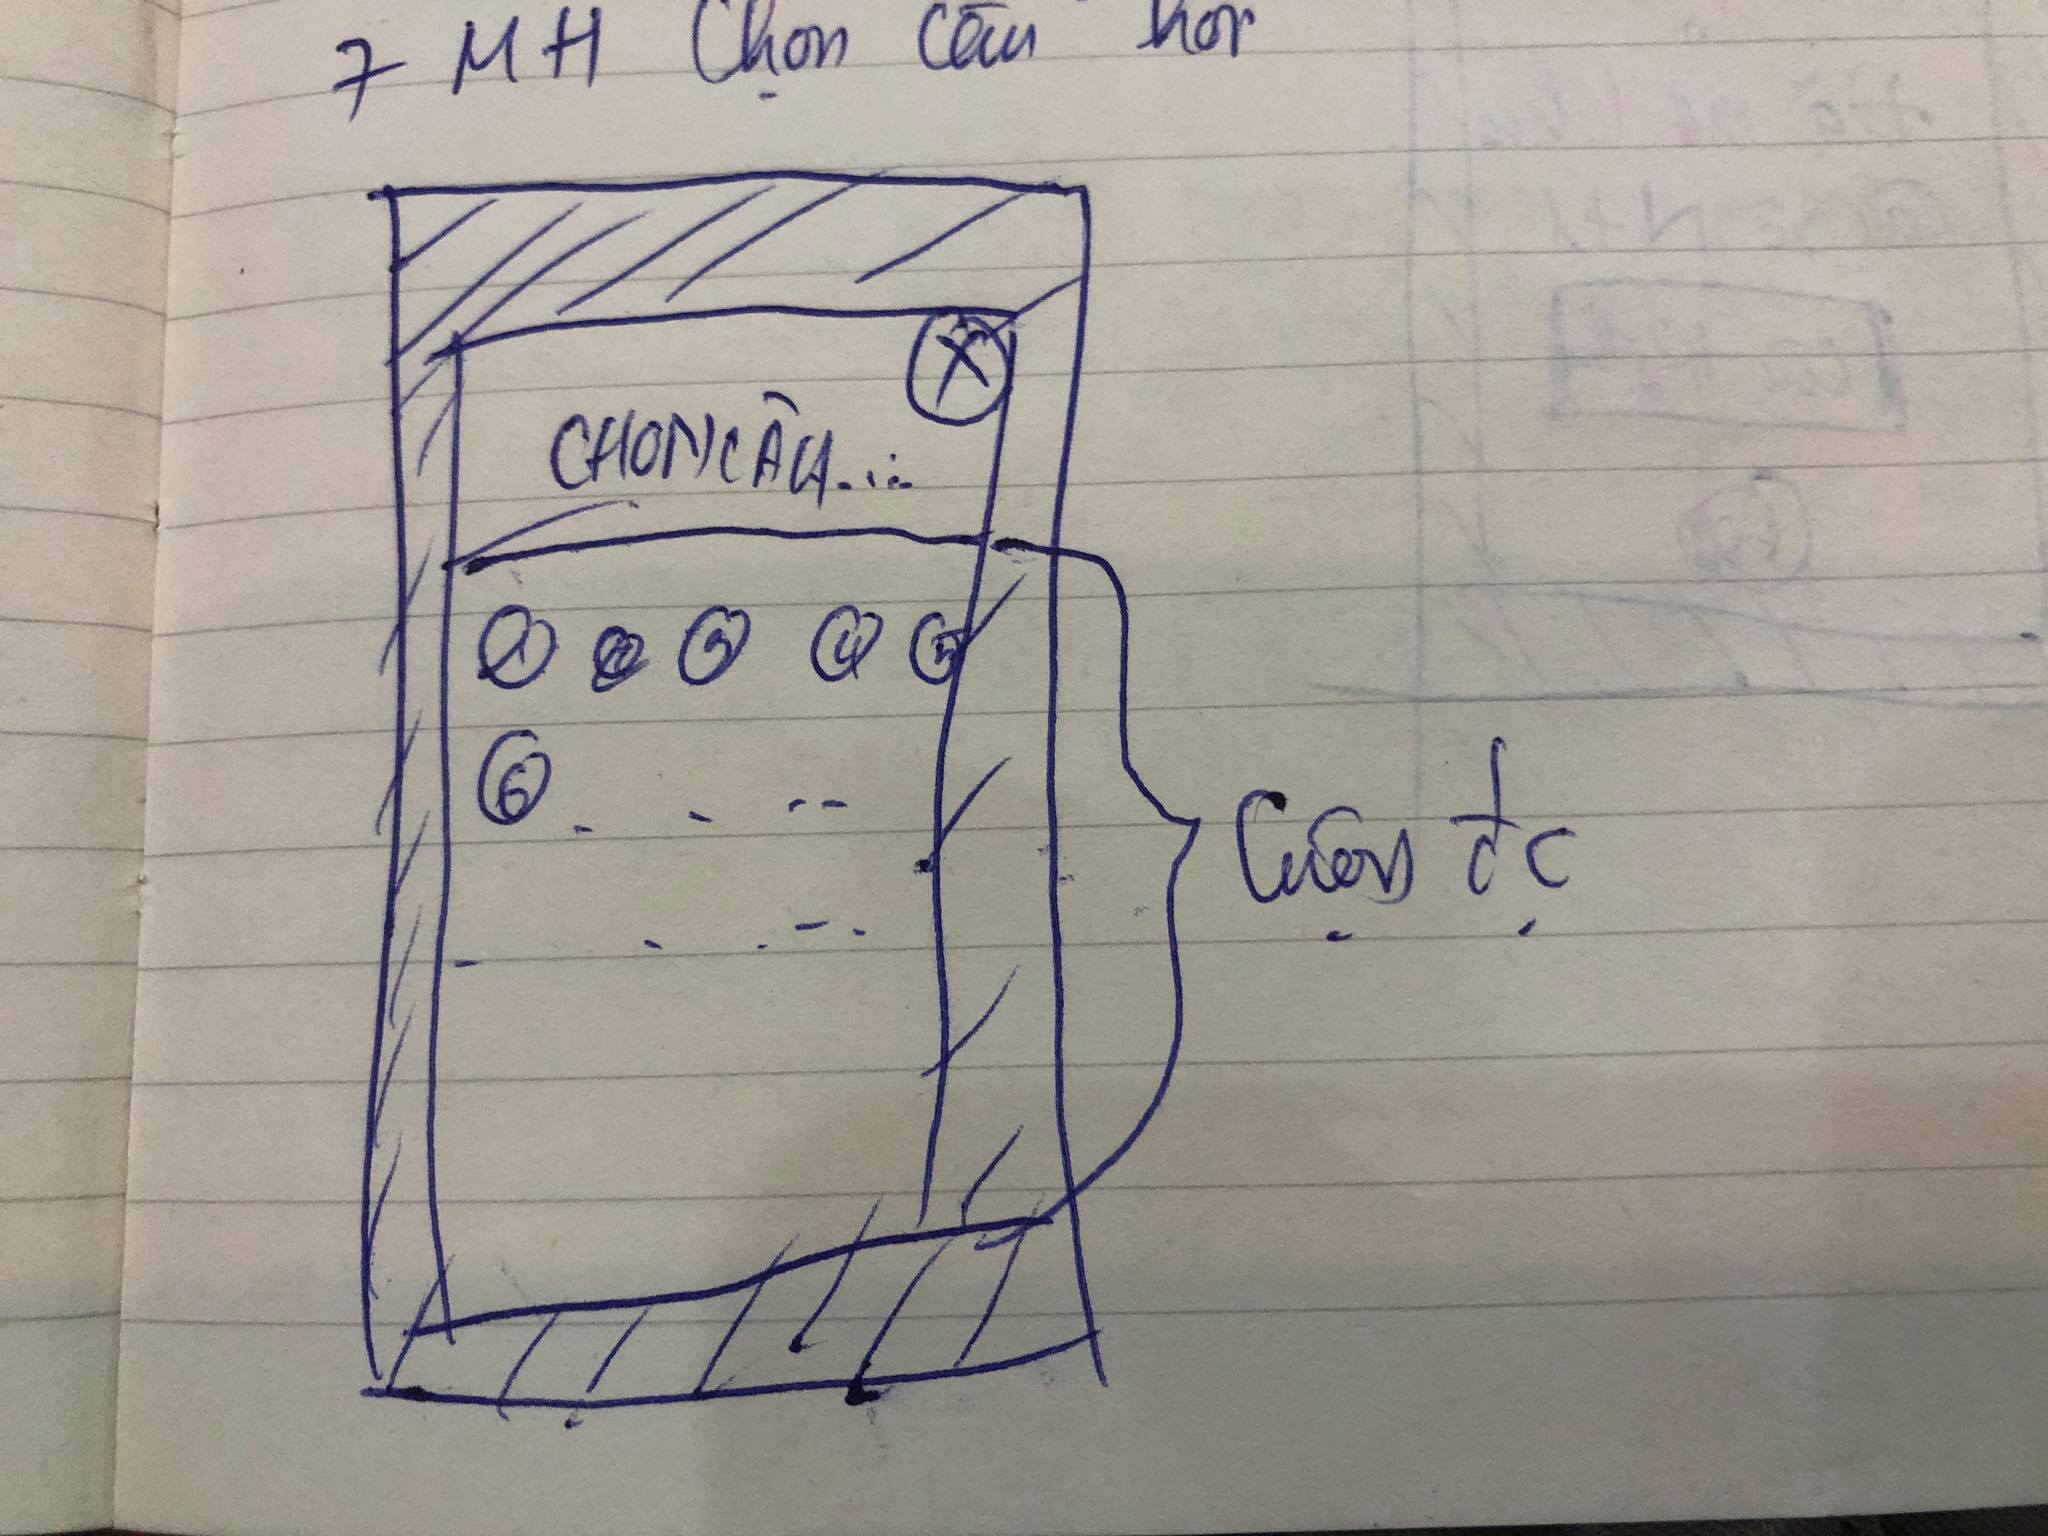 7 MH Chọn câu hỏi
X
CHỌN CÂU...
1 2 3 4 5
6
Cuộn đc